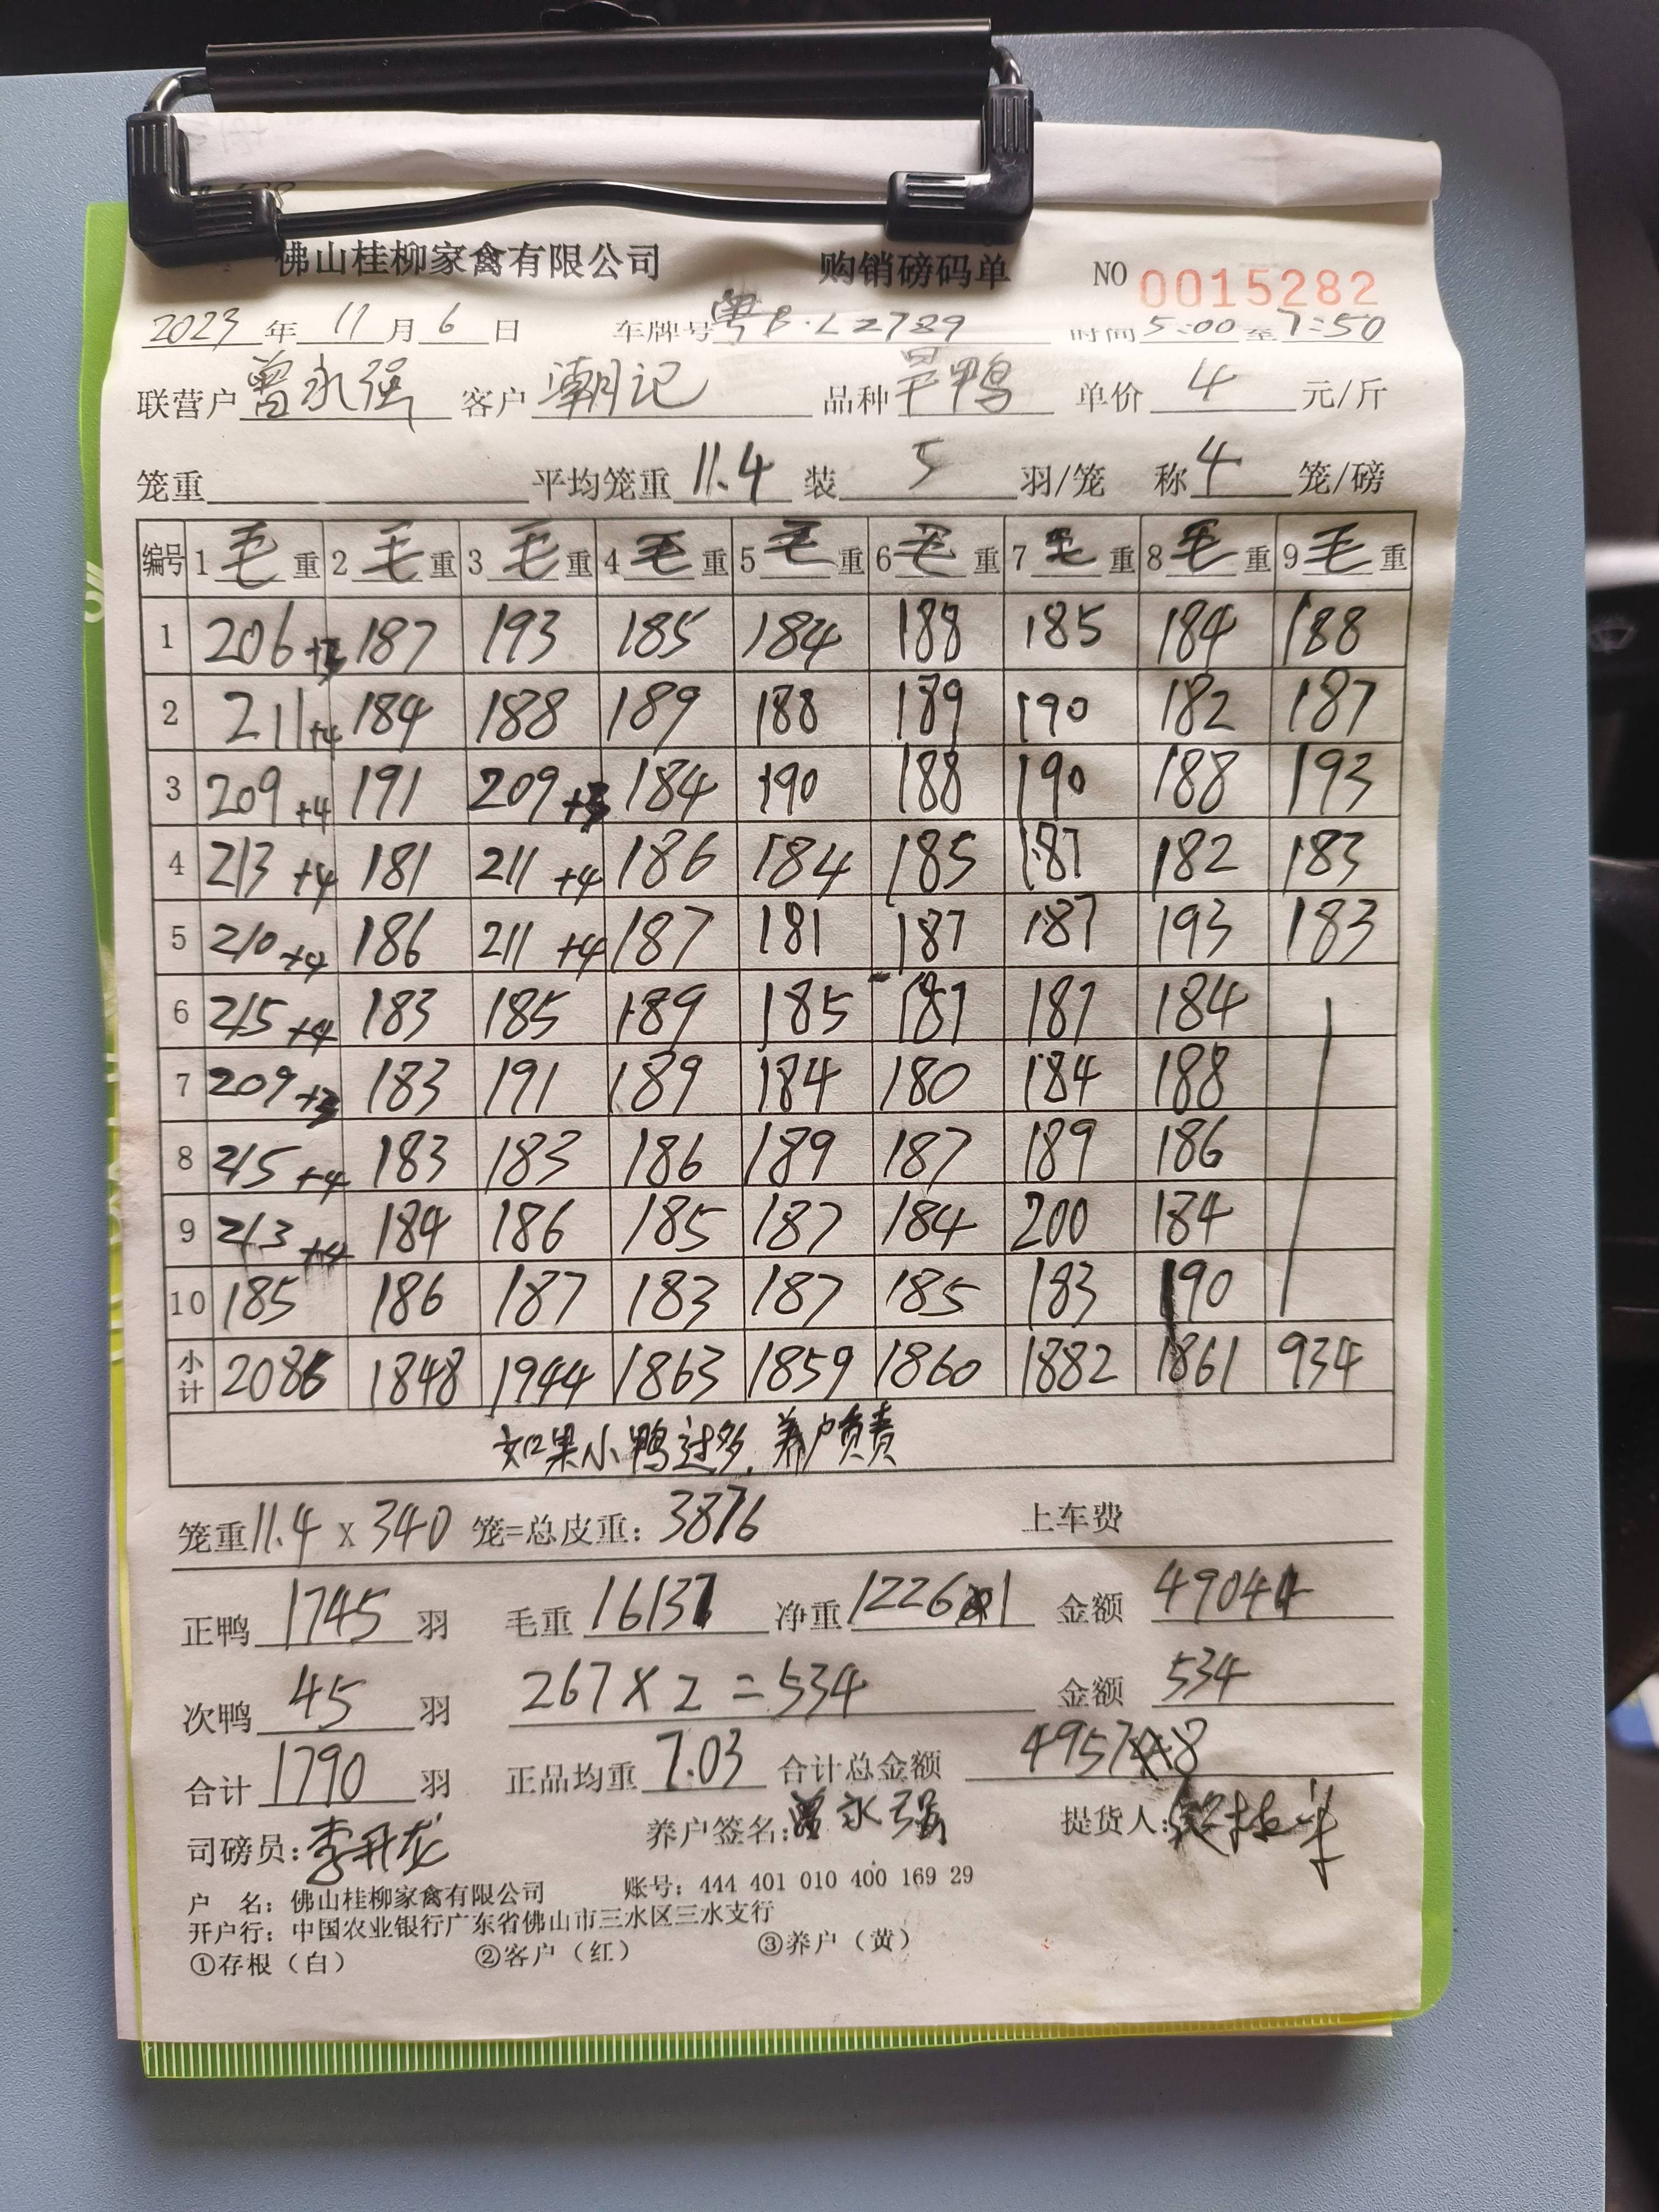 佛山桂柳家禽有限公司 购销磅码单 NO 0015282
2023年 11月 6日 车牌号 粤B·L2789 时间 5:00 至 7:50
联营户 曾永强 客户 潮记 品种 旱鸭 单价 4 元/斤
笼重 平均笼重 11.4 装 5 羽/笼 称 4 笼/磅
编号 1毛重 2毛重 3毛重 4毛重 5毛重 6毛重 7毛重 8毛重 9毛重
1 206+3 187 193 185 184 188 185 184 188
2 211+4 184 188 189 188 189 190 182 187
3 209+4 191 209+3 184 190 188 190 188 193
4 213+4 181 211+4 186 184 185 187 182 183
5 210+4 186 211+4 187 181 187 187 193 183
6 215+4 183 185 189 185 187 187 184
7 209+3 183 191 189 184 180 184 188
8 215+4 183 183 186 189 187 189 186
9 213+4 184 186 185 187 184 200 184
10 185 186 187 183 187 185 183 190
小计 2086 1848 1944 1863 1859 1860 1882 1861 934
如果小鸭过多,养户负责
笼重 11.4 x 340 笼=总皮重: 3876 上车费
正鸭 1745 羽 毛重 16137 净重 12261 金额 49044
次鸭 45 羽 267×2=534 金额 534
合计 1790 羽 正品均重 7.03 合计总金额 49578
司磅员: 李开龙 养户签名: 曾永强 提货人:
户 名: 佛山桂柳家禽有限公司 账号: 444 401 010 400 169 29
开户行: 中国农业银行广东省佛山市三水区三水支行
①存根（白） ②客户（红） ③养户（黄）